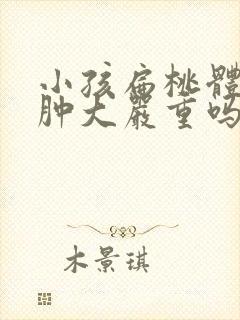 小孩扁桃體
肿大嚴重吗
木景琪